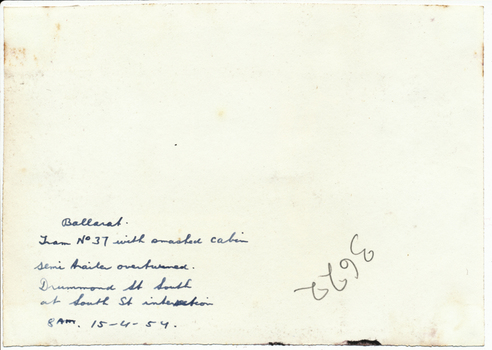 Ballarat.
Tram Nº 37 with smashed cabin
semi trailer overturned.
Drummond St South
at South St intersection
8 AM. 15-4-54.